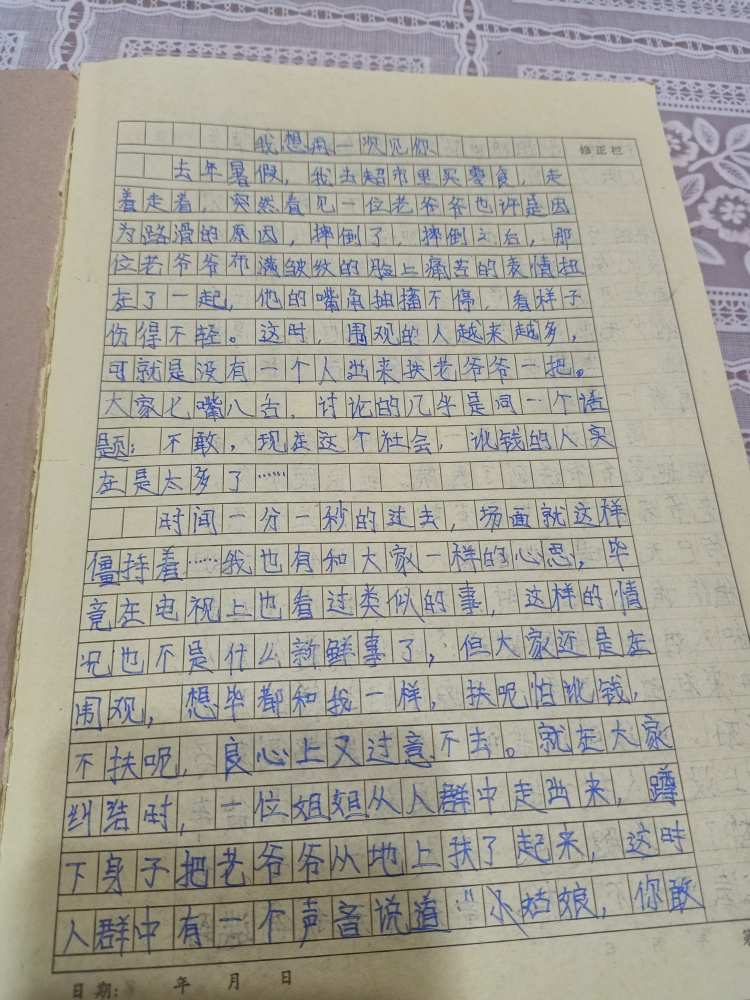 我想再一次见你
修正栏
去年暑假，我去超市里买零食，走
着走着，突然看见一位老爷爷也许是因
为路滑的原因，摔倒了，摔倒之后，那
位老爷爷布满皱纹的脸上痛苦的表情扭
在了一起，他的嘴角抽搐不停，看样子
伤得不轻。这时，围观的人越来越多，
可就是没有一个人出来扶老爷爷一把。
大家七嘴八舌，讨论的几乎是同一个话
题：不敢，现在这个社会，讹钱的人实
在是太多了……
时间一分一秒的过去，场面就这样
僵持着……我也有和大家一样的心思，毕
竟在电视上也看过类似的事，这样的情
况也不是什么新鲜事了，但大家还是在
围观，想毕都和我一样，扶呢怕讹钱，
不扶呢，良心上又过意不去。就在大家
纠结时，一位姐姐从人群中走出来，蹲
下身子把老爷爷从地上扶了起来，这时
人群中有一个声音说道“小姑娘，你敢
日期：　年　月　日